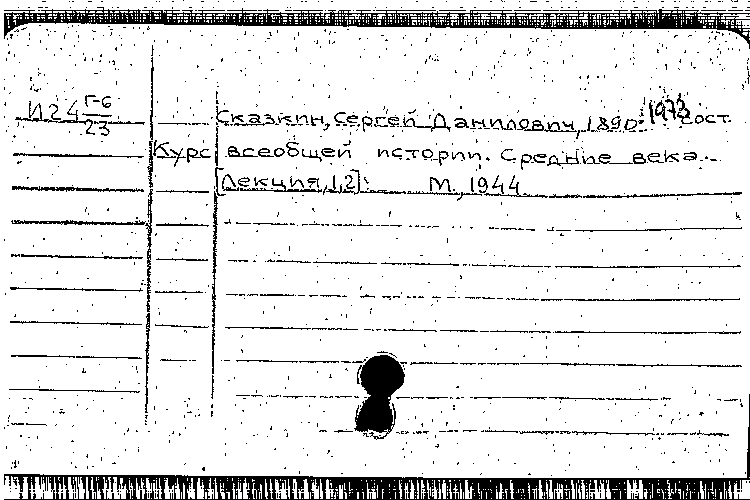 И24 Г-6
23
Сказкин, Сергей Данилович, 1890-1973 сост.
Курс всеобщей истории. Средние века.-
[Лекция, 1, 2]: М., 1944